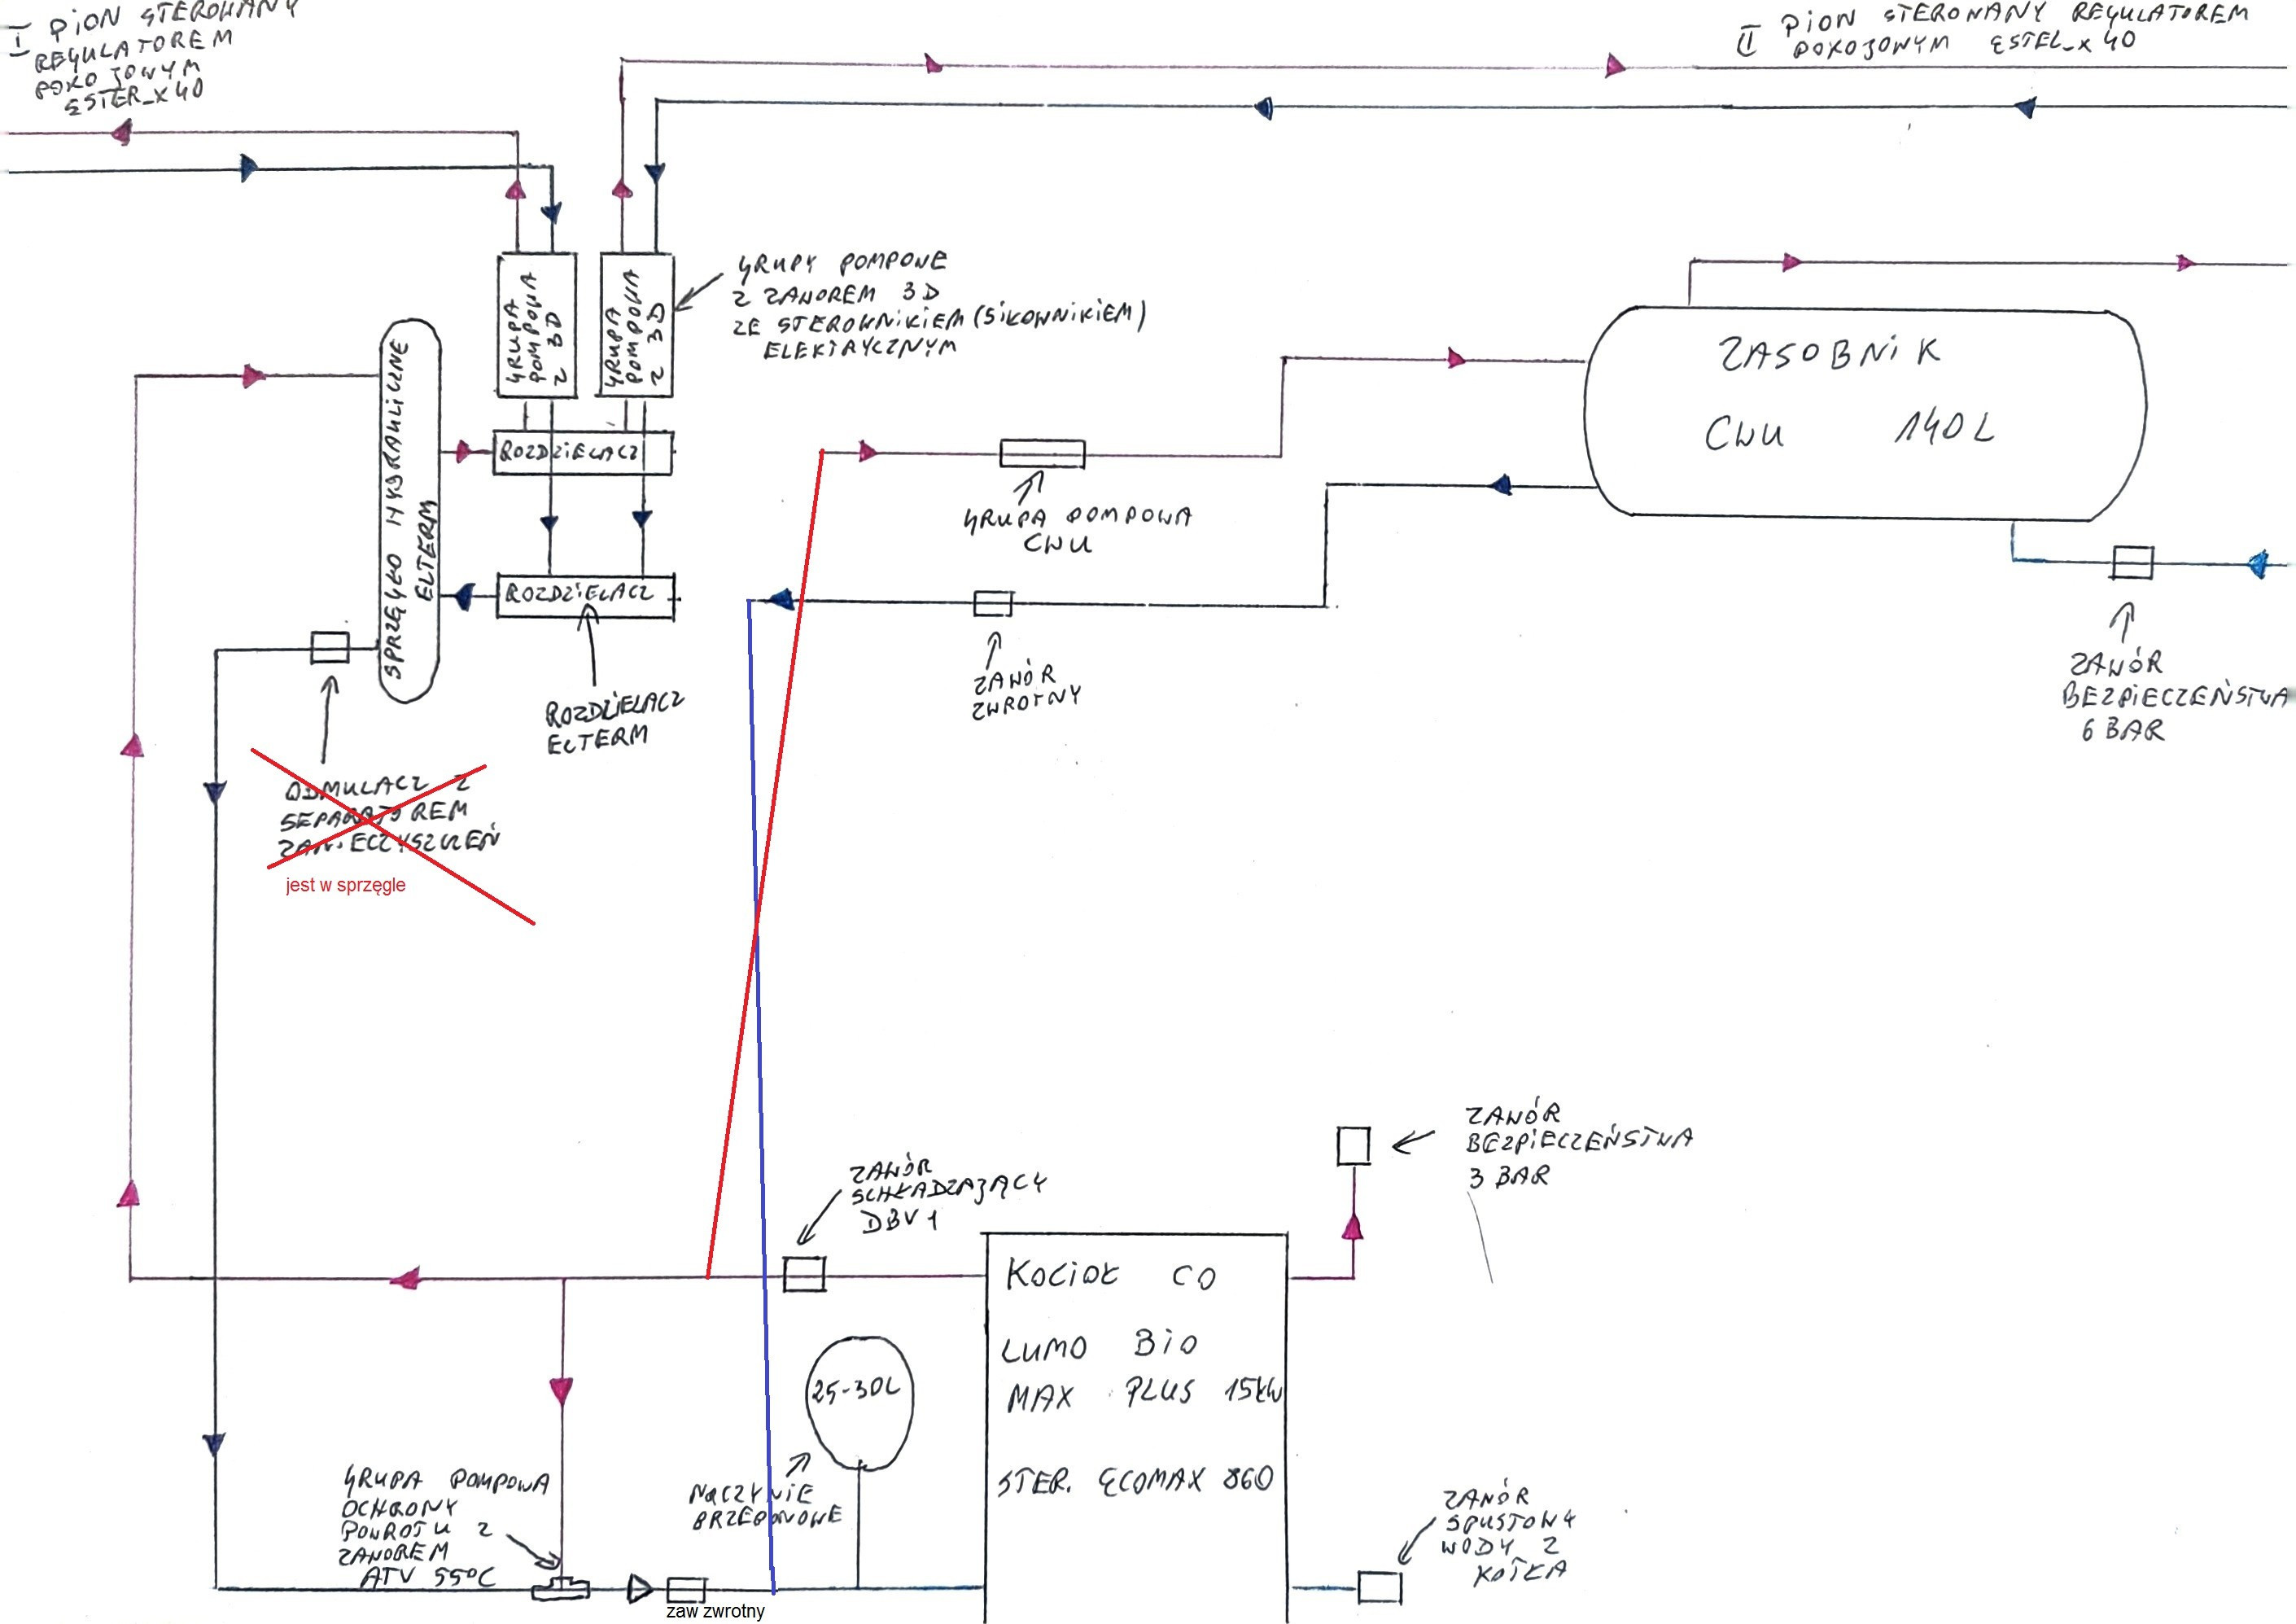 I PION STEROWANY
REGULATOREM
POKOJOWYM
ESTER_X40
II PION STEROWANY REGULATOREM
POKOJOWYM ESTEL_X40
GRUPA
POMPOWA
Z 3D
GRUPA
POMPOWA
Z 3D
GRUPY POMPOWE
Z ZAWOREM 3D
ZE STEROWNIKIEM (SIŁOWNIKIEM)
ELEKTRYCZNYM
SPRZĘGŁO HYDRAULICZNE
ELTERM
ROZDZIELACZ
ROZDZIELACZ
ROZDZIELACZ
ELTERM
ZASOBNIK
CWU 140L
GRUPA POMPOWA
CWU
ZAWÓR
ZWROTNY
ZAWÓR
BEZPIECZEŃSTWA
6 BAR
ODMULACZ Z
SEPARATOREM
ZANIECZYSZCZEŃ
jest w sprzęgle
ZAWÓR
SCHŁADZAJĄCY
DBV1
ZAWÓR
BEZPIECZEŃSTWA
3 BAR
KOCIOŁ CO
LUMO BIO
MAX PLUS 15kW
STER. ECOMAX 860
25-30L
NACZYNIE
PRZEPONOWE
GRUPA POMPOWA
OCHRONY
POWROTU Z
ZAWOREM
ATV 55°C
zaw zwrotny
ZAWÓR
SPUSTOWY
WODY Z
KOTŁA